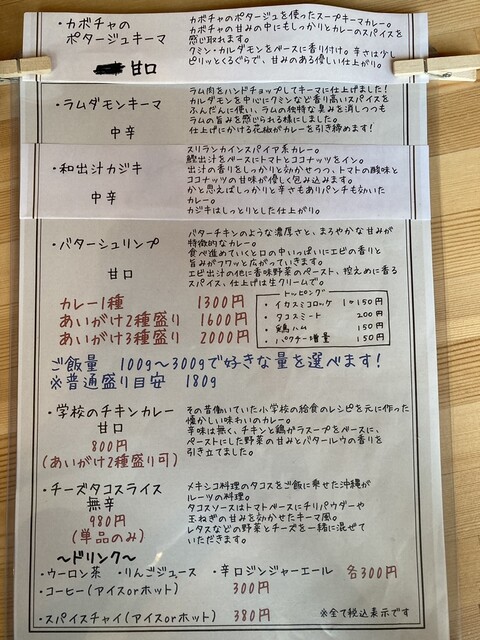 ・カボチャの
ポタージュキーマ
甘口
カボチャのポタージュを使ったスープキーマカレー。
カボチャの甘みの中にもしっかりとカレーのスパイスを
感じ取れます。
クミン・カルダモンをベースに香り付け。辛さは少し
ピリッとくるぐらで、甘みのある優しい仕上がり。
・ラムダモンキーマ
中辛
ラム肉をハンドチョップしてキーマに仕上げました!
カルダモンを中心にクミンなど香り高いスパイスを
ふんだんに使い、ラムの独特な臭みを消しつつも
ラムの旨みを感じられる様にしました。
仕上げにかける花椒がカレーを引き締めます!
・和出汁カジキ
中辛
スリランカインスパイア系カレー。
鰹出汁をベースにトマトとココナッツをイン。
出汁の香りをしっかりと効かせつつ、トマトの酸味と
ココナッツの甘味が優しく包み込みます。
かと思えばしっかりと辛さもありパンチも効いた
カレー。
カジキはしっとりとした仕上がり。
・バターシュリンプ
甘口
バターチキンのような濃厚さと、まろやかな甘みが
特徴的なカレー。
食べ進めていくと口の中いっぱいにエビの香りと
旨みがフワッと広がっていきます。
エビ出汁の他に香味野菜のペースト、控えめに香る
スパイス、仕上は生クリームで。
カレー1種 1300円
あいがけ2種盛り 1600円
あいがけ3種盛り 2000円
トッピング
・イカスミコロッケ 1ヶ150円
・タコスミート 200円
・鶏ハム 150円
・パクチー増量 150円
ご飯量 100g〜300gで好きな量を選べます!
※普通盛り目安 180g
・学校のチキンカレー
甘口
800円
(あいがけ2種盛り可)
その昔働いていた小学校の給食のレシピを元に作った
懐かしい味わいのカレー。
辛味は無く、チキンと鶏がらスープをベースに、
ペーストにした野菜の甘みとバタールウの香りを
引き立てました。
・チーズタコスライス
無辛
980円
(単品のみ)
メキシコ料理のタコスをご飯に乗せた沖縄が
ルーツの料理。
タコスソースはトマトベースにチリパウダーや
玉ねぎの甘みを効かせたキーマ風。
レタスなどの野菜とチーズを一緒に混ぜて
いただきます。
〜ドリンク〜
・ウーロン茶 ・りんごジュース ・辛口ジンジャーエール 各300円
・コーヒー(アイスorホット) 300円
・スパイスチャイ(アイスorホット) 380円
※全て税込表示です